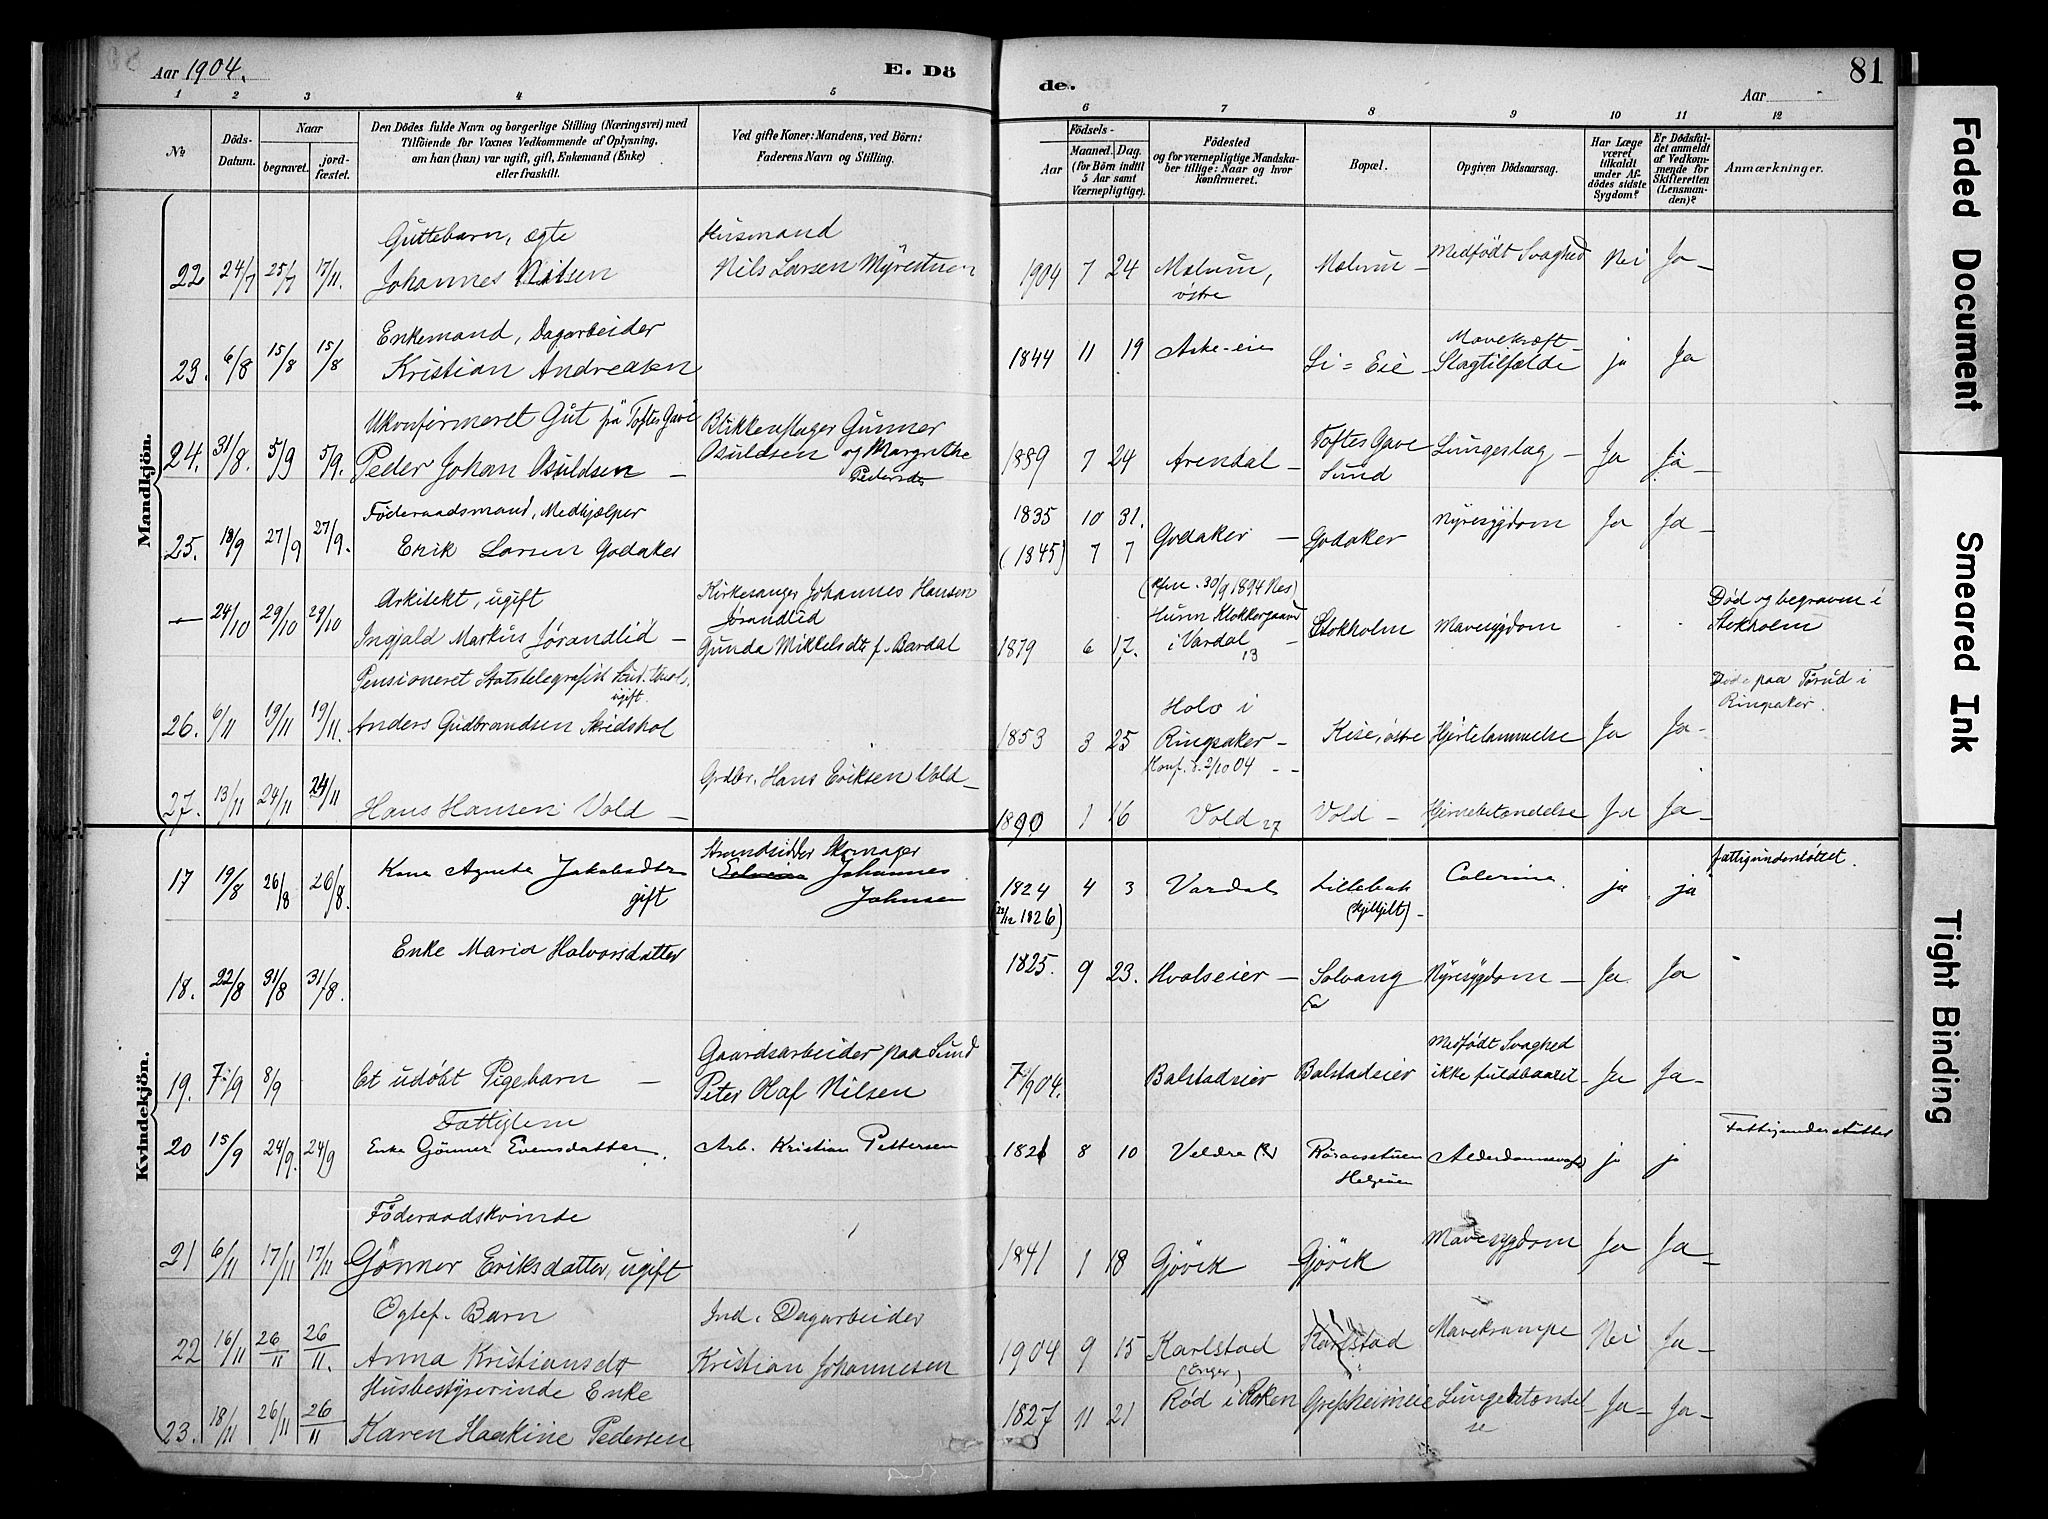 Aar 1904.
E. Dö
de.
Aar
81
1 2 3 4 5 6 7 8 9 10 11 12
No
Döds-Datum.
Naar
begravet.
jord-fæstet.
Den Dödes fulde Navn og borgerlige Stilling (Næringsvei) med
Tilföiende for Voxnes Vedkommende af Oplysning,
om han (hun) var ugift, gift, Enkemand (Enke)
eller fraskilt.
Ved gifte Koner: Mandens, ved Börn:
Faderens Navn og Stilling.
Födsels-
Aar
Maaned. Dag.
(for Börn indtil
5 Aar samt
Værnepligtige).
Födested
og for værnepligtige Mandska-
ber tillige: Naar og hvor
konfirmeret.
Bopæl.
Opgiven Dödsaarsag.
Har Læge
været
tilkaldt
under Af-
dödes sidste
Sygdom?
Er Dödsfal-
det anmeldt
af Vedkom-
mende for
Skifteretten
(Lensman-
den)?
Anmærkninger.
Mandkjön.
Guttebarn, ægte Husmand
22 24/7 25/7 17/11. Johannes Nilsen Nils Larsen Myrestuen 1904 7 24 Mælum, østre Mælum - Medfödt Svaghed Nei Ja -
Enkemand, Dagarbeider
23. 6/8 15/8 15/8 Kristian Andreasen 1844 11 19 Aske-eie Li = Eie Mavekræft - Slagtilfælde ja Ja
Ukonfirmeret Gut frå Toftes Gave Blikkenslager Gunner
24. 31/8. 5/9 5/9. Peder Johan Osuldsen - Osuldsen og Margrethe Pedersdtr 1889 7 24 Arendal - Toftes Gave Sund Lungeslag - Ja Ja -
Föderaadsmand, Medhjælper
25. 18/9 27/9 27/9. Erik Larsen Godaker 1835 10 31. (1845) 7 7 Godaker - Godaker Nyresygdom Ja Ja -
Arkitekt, ugift Kirkesanger Johannes Hansen Jørandlid
— 24/10 29/10 29/10 Ingjald Markus Jørandlid - Gunda Mikkelsdtr f. Bardal 1879 6 17. (Kfm. 30/9 1894 Nes) Hunn Klokkergaard i Vardal - 13 Stokholm Mavesygdom Död og begraven i Stokholm
Pensioneret Statstelegrafist ugift.
26. 6/11 19/11 19/11. Anders Gudbrandsen Skridshol 1853 3 25 Holo i Ringsaker - Kise, østre Hjertelammelse Ja Ja - Døde paa Tørud i Ringsaker.
Grdbr. Hans Eriksen Vold -
27. 13/11 24/11 24/11 Hans Hansen Vold - 1890 1 16 Konf. 2/10 04 - - Vold 27 Vold - Hjernebetændelse Ja Ja -
Kvindekjön.
Strandsidder Skomager
17 19/8 26/8 26/8. Kone Agnete Jakobsdtr gift Johannes Johnsen 1824 4 3 (22/12 1826) Vardal Lillebak - Colerina. ja ja fattigunderstöttet.
Enke Maria Halvorsdatter
18. 22/8 31/8 31/8. 1825. 9 23. Hvalseier - Solvang Nyresygdom - Ja Ja
Gaardsarbeider paa Sund
19. 7/9 8/9 Et udöbt Pigebarn - Peter Olaf Nilsen 7/9 04. Balstadseier Balstadseier Medfödt Svaghed ikke fuldbaaret - Ja Ja -
Fattiglem
20 15/9 24/9. 24/9 Enke Gönner Evensdatter. Arb. Kristian Pettersen 1821 8 10 Veldre Helgøen Alderdomssvagh. ja ja Fattigunderstöttet
Föderaadskvinde
21 6/11 17/11 17/11 Gönner Eriksdatter, ugift 1841 1 18 Gjövik - Gjövik Mavesygdom Ja Ja -
Ægtef. Barn Ind. Dagarbeider
22 16/11 26/11 26/11. Anna Kristiansdt Kristian Johannesen 1904 9 15 Karlstad (Enger) Karlstad Mavekrampe Nei Ja -
Husbestyrerinde Enke
23. 18/11 26/11 26/11 Karen Haakine Pedersen 1827 11 21 Rød i Røken Grefsheimeie Lungebetændelse Ja - Ja -
Faded Document
Smeared Ink
Tight Binding